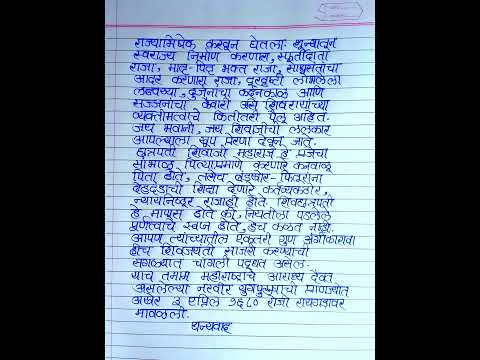 राज्याभिषेक करवून घेतला. शून्यातून
स्वराज्य निर्माण करणारा, स्फूर्तीदाता
राजा, मातृ-पितृ भक्त राजा, साधुसंतांचा
आदर करणारा राजा, दूरदृष्टी लाभलेला
लढवय्या, दुर्जनांचा कर्दनकाळ आणि
सज्जनांचा कैवारी असे शिवरायांच्या
व्यक्तीमत्वाचे कितीतरी पैलू आहेत.
जय भवानी, जय शिवाजीची ललकार
आपल्याला खूप प्रेरणा देवून जाते.
छत्रपती शिवाजी महाराज हे प्रजेचा
सांभाळ पित्याप्रमाणे करणारे कनवाळू
पिता होते, तसेच बंडखोर-फितुरांना
देहदंडाची शिक्षा देणारे कर्तव्यकठोर,
न्यायनिष्ठूर राजाही होते. शिवछत्रपती
हे माणूस होते की, नियतीला पडलेले
पूर्णत्वाचे स्वप्न होते, हेच कळत नाही.
आपण त्यांच्यातील एकतरी गुण अंगीकारावा
हीच शिवजयंती साजरी करण्याची
सगळ्यात चांगली पद्धत असेल.
याच तमाम महाराष्ट्राचे आराध्य दैवत
असलेल्या नरवीर युगपुरुषाची प्राणज्योत
अखेर ३ एप्रिल १६८० रोजी रायगडावर
मावळली.
धन्यवाद